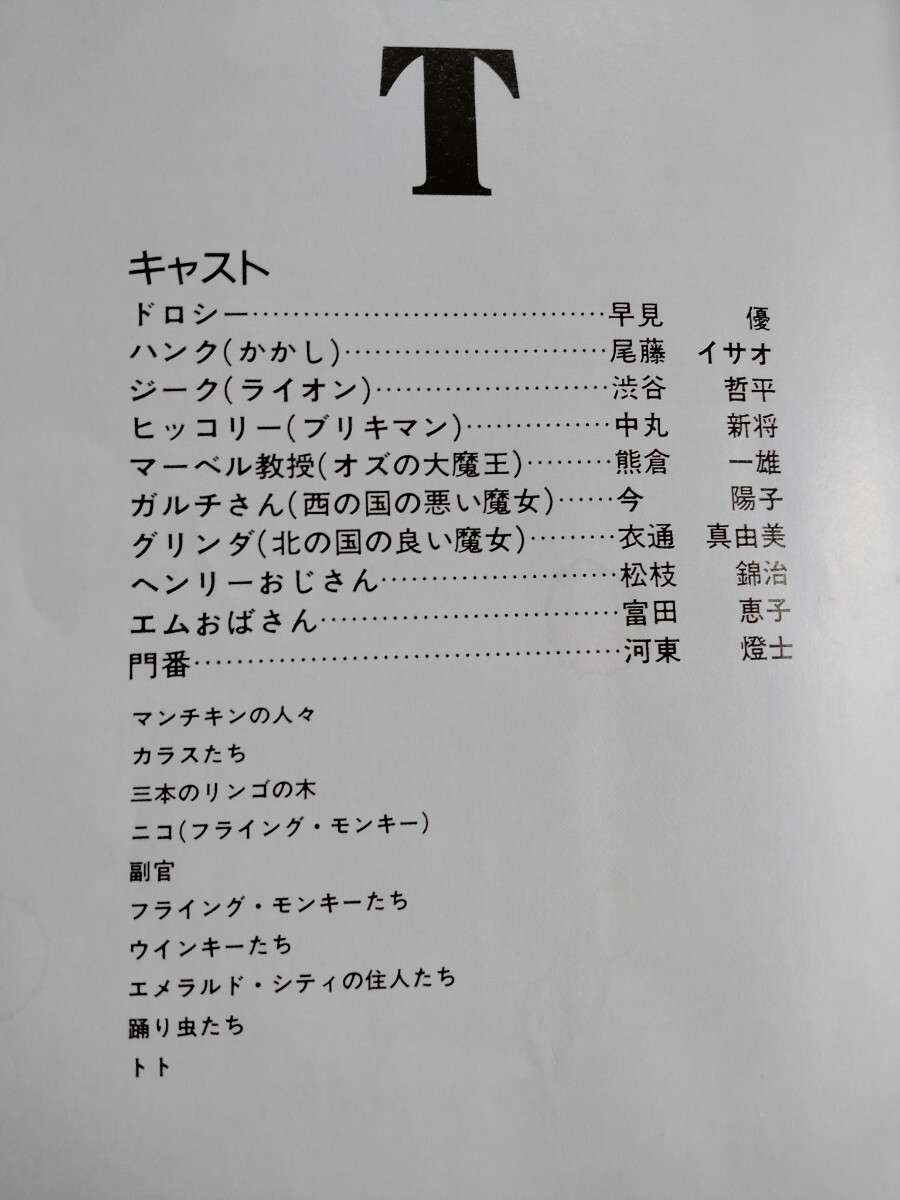 T
キャスト
ドロシー……………………………………早見 優
ハンク(かかし)…………………………尾藤 イサオ
ジーク(ライオン)………………………渋谷 哲平
ヒッコリー(ブリキマン)……………中丸 新将
マーベル教授(オズの大魔王)………熊倉 一雄
ガルチさん(西の国の悪い魔女)……今 陽子
グリンダ(北の国の良い魔女)………衣通 真由美
ヘンリーおじさん………………………松枝 錦治
エムおばさん……………………………富田 恵子
門番…………………………………………河東 燈士
マンチキンの人々
カラスたち
三本のリンゴの木
ニコ(フライング・モンキー)
副官
フライング・モンキーたち
ウインキーたち
エメラルド・シティの住人たち
踊り虫たち
トト